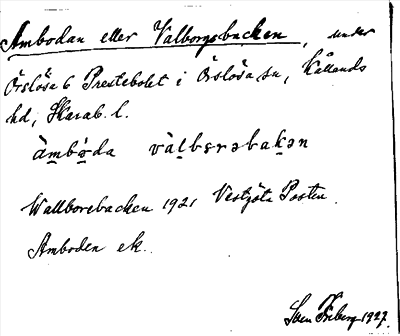 Ambodan eller Valborgsbacken, under
Örslösa 6 Prestebolet i Örslösa sn, Kållands
hd, Skarab. l.
àmbó̤da vàlbɛrəbakən
Wallborebacken 1921 Vestgöta Posten.
Amboden ek.
Sven Friberg 1927.